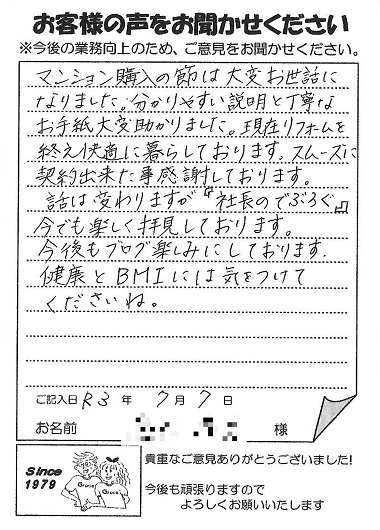 お客様の声をお聞かせください
※今後の業務向上のため、ご意見をお聞かせください。
マンション購入の節は大変お世話に
なりました。分かりやすい説明と丁寧な
お手紙大変助かりました。現在リフォームを
終え快適に暮らしております。スムーズに
契約出来た事感謝しております。
話は変わりますが『社長のでぶろぐ』
今でも楽しく拝見しております。
今後もブログ楽しみにしております。
健康とBMIには気をつけて
くださいね。
ご記入日 R3 年 7月 7日
お名前 様
Since
1979
Grace
Grace
貴重なご意見ありがとうございました!
今後も頑張りますので
よろしくお願いいたします